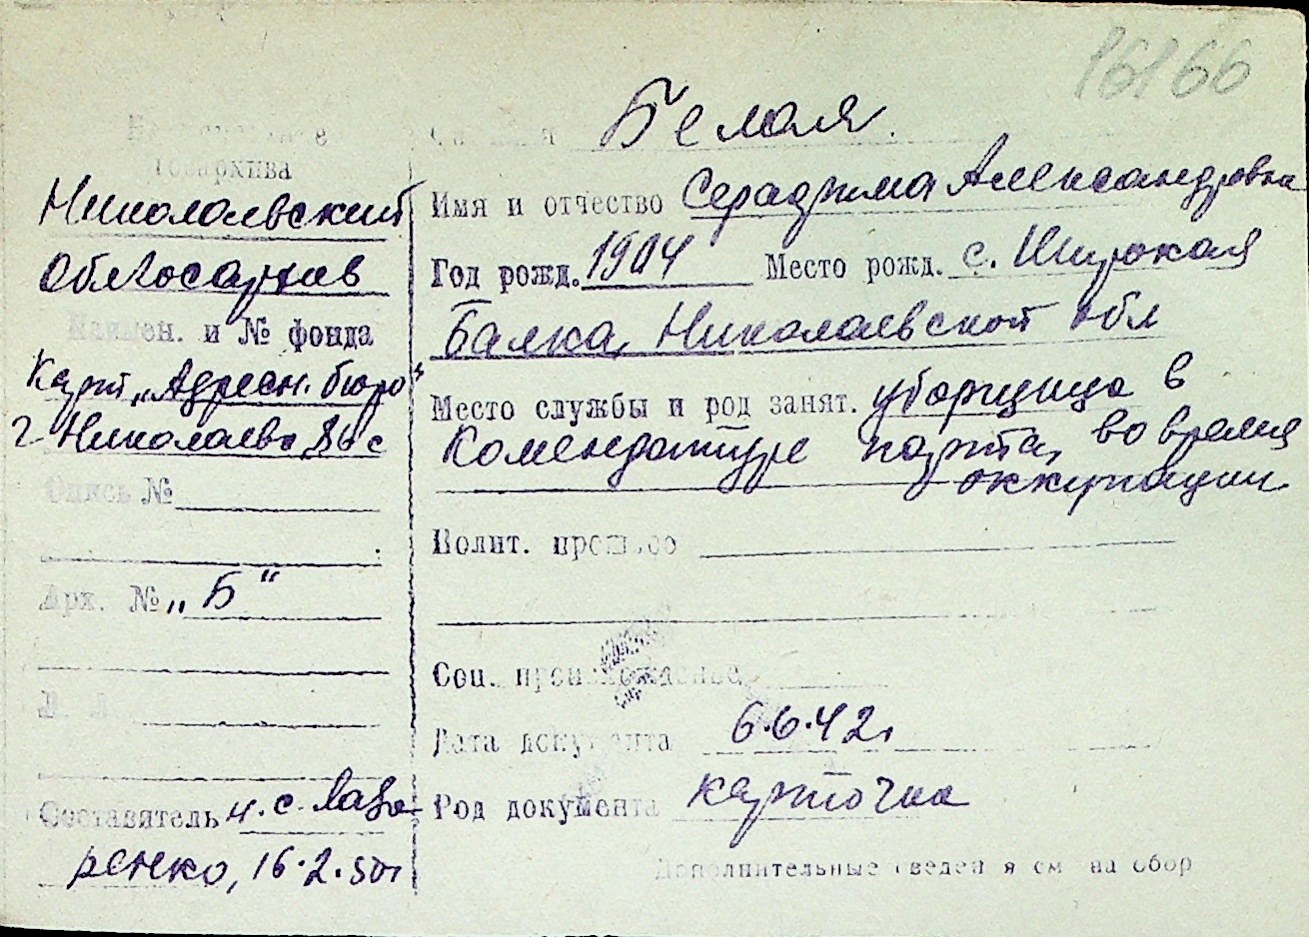 16166
госархива
Николаевский
Облгосархив
Наимен. и № фонда
Карт „Адресн. бюро"
г. Николаева
Опись №
Арх. № „Б"
Составитель н.с. Лаза-
ренко, 16.2.50г
Белая
Имя и отчество Серафима Александровна
Год рожд. 1904 Место рожд. с. Широкая
Балка, Николаевской обл
Место службы и род занят. уборщица в
Комендатуре порта, во время
оккупации
Полит. прошлое
Соц. происхожденье
Дата документа 6.6.42г
Род документа карточка
Дополнительные сведен я см на обор